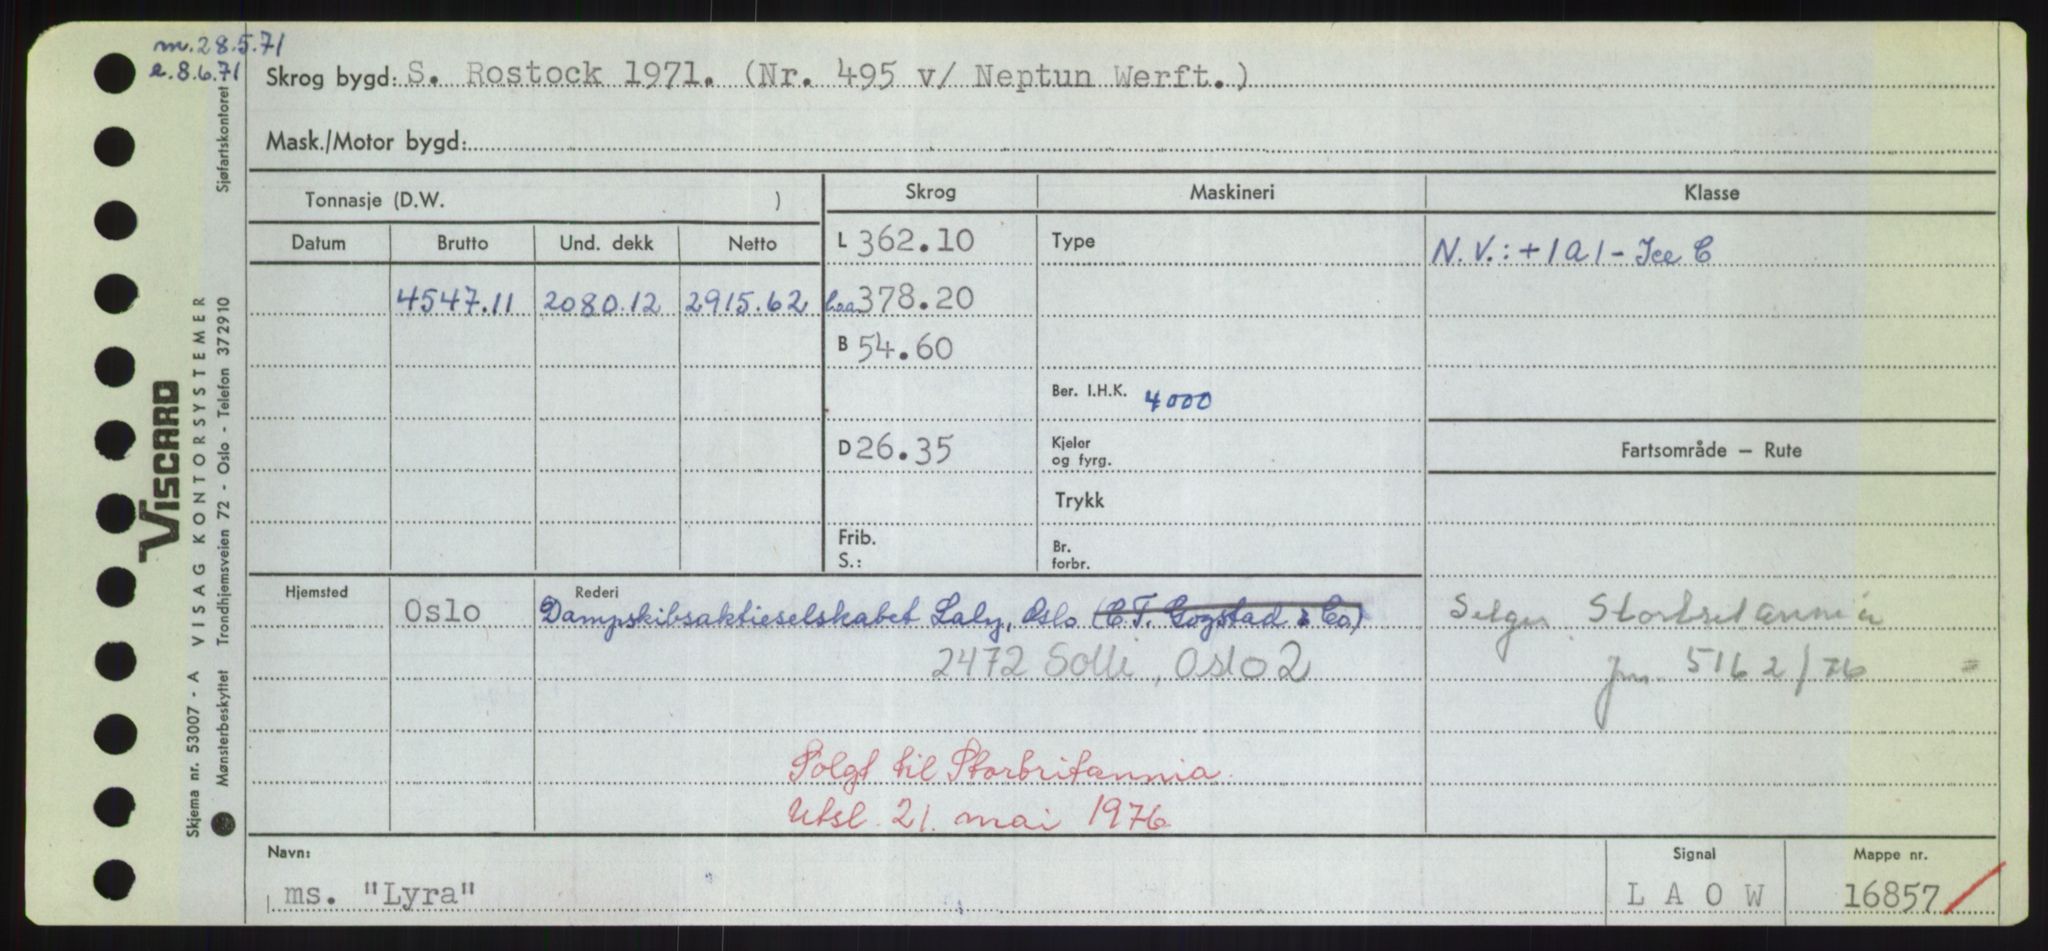 m.28.5.71
a.8.6.71
Skrog bygd: S. Rostock 1971. (Nr. 495 v/ Neptun Werft.)
Mask./Motor bygd:
Tonnasje (D.W. )
Skrog
Maskineri
Klasse
Datum
Brutto
Und. dekk
Netto
L 362.10
Type
N.V.: +1A1 - Ice C
4547.11
2080.12
2915.62
loa 378.20
B 54.60
Ber. I.H.K. 4000
D 26.35
Kjeler
og fyrg.
Fartsområde – Rute
Trykk
Frib.
S.:
Br.
forbr.
Hjemsted
Oslo
Rederi
Dampskibsaktieselskabet Laly, Oslo (C.T. Gogstad & Co)
2472 Solli, Oslo 2
Selges Storbritannia
jnr. 5162/76
Solgt til Storbritannia.
Utsl. 21. mai 1976
Navn:
ms. "Lyra"
Signal
L A O W
Mappe nr.
16857
VISCARD
Skjema nr. 53007 - A VISAG KONTORSYSTEMER
Mønsterbeskyttet Trondhjemsveien 72 - Oslo - Telefon 372910 Sjøfartskontoret